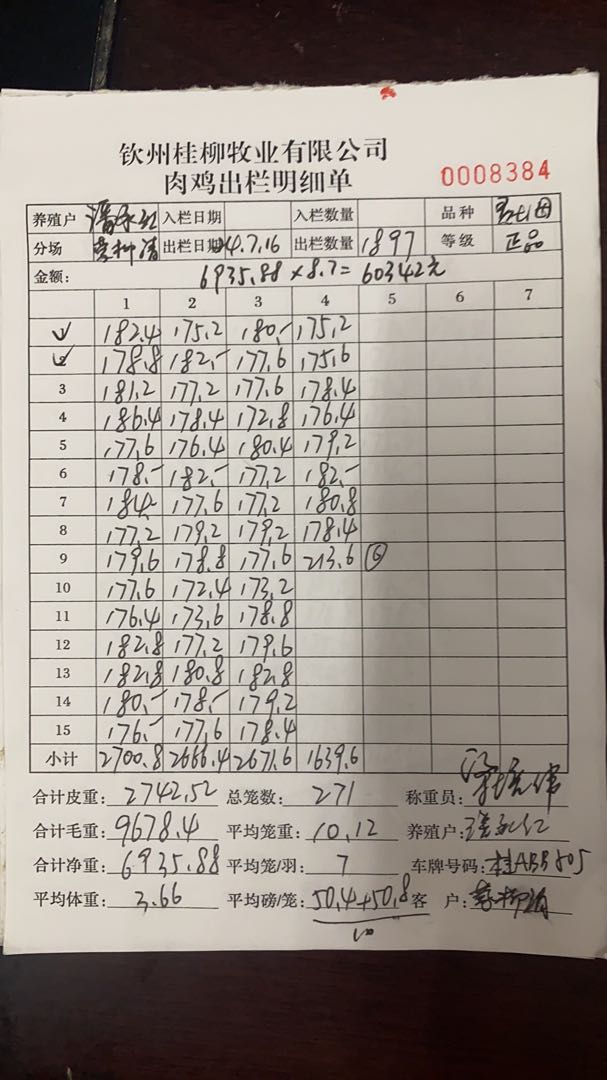 钦州桂柳牧业有限公司
肉鸡出栏明细单
0008384
养殖户 入栏日期 入栏数量 品种
分场 出栏日期 4.7.16 出栏数量 1897 等级 正品
金额: 6935.88×8.7=60342元
1 2 3 4 5 6 7
1 182.4 175.2 180.- 175.2
2 178.8 182.- 177.6 175.6
3 181.2 177.2 177.6 178.4
4 186.4 178.4 172.8 176.4
5 177.6 176.4 180.4 179.2
6 178.- 182.- 177.2 182.-
7 184.- 177.6 177.2 180.8
8 177.2 179.2 179.2 178.4
9 179.6 178.8 177.6 213.6 ⑥
10 177.6 172.4 173.2
11 176.4 173.6 178.8
12 182.8 177.2 179.6
13 182.8 180.8 182.8
14 180.- 178.- 179.2
15 176.- 177.6 178.4
小计 2700.8 2666.4 2671.6 1639.6
合计皮重: 2742.52 总笼数: 271 称重员:
合计毛重: 9678.4 平均笼重: 10.12 养殖户:
合计净重: 6935.88 平均笼/羽: 7 车牌号码: 桂ABB805
平均体重: 3.66 平均磅/笼: 50.4+50.8 客 户:
10